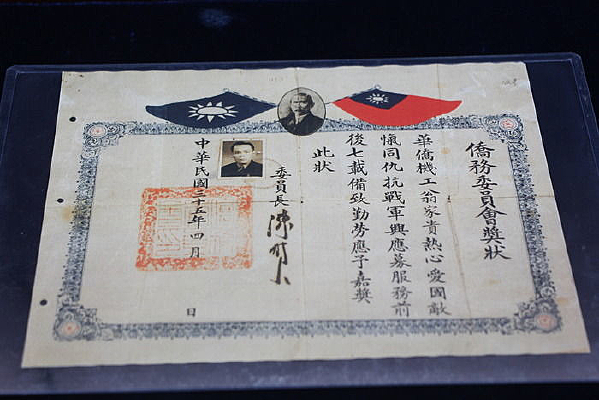 僑務委員會獎狀
華僑機工翁家貴熱心愛國敵
愾同仇抗戰軍興應募服務前
後七載備致勤勞應予嘉獎
此狀
委員長
中華民國三十五年四月 日